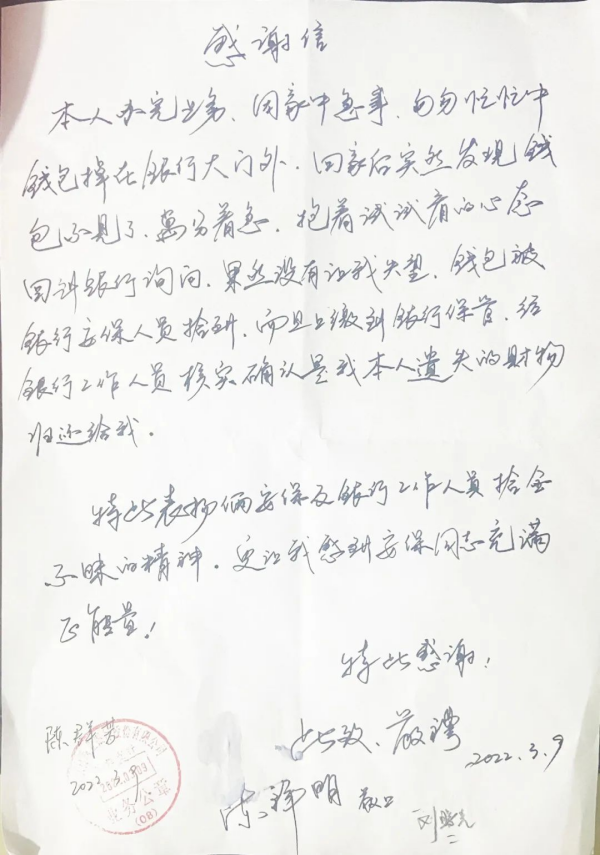 感谢信
本人办完业务、回家中急事、匆匆忙忙中
钱包掉在银行大门外、回家后突然发现钱
包不见了、万分着急、抱着试试看的心态
回到银行询问、果然没有让我失望、钱包被
银行安保人员拾到、而且上缴到银行保管、经
银行工作人员核实确认是我本人遗失的财物
归还给我.
特此表扬俩安保及银行工作人员拾金
不昧的精神.更让我感到安保同志充满
正能量!
特此感谢!
此致、敬礼
2022.3.9
陈群芳
业务公章
(08)
敬上